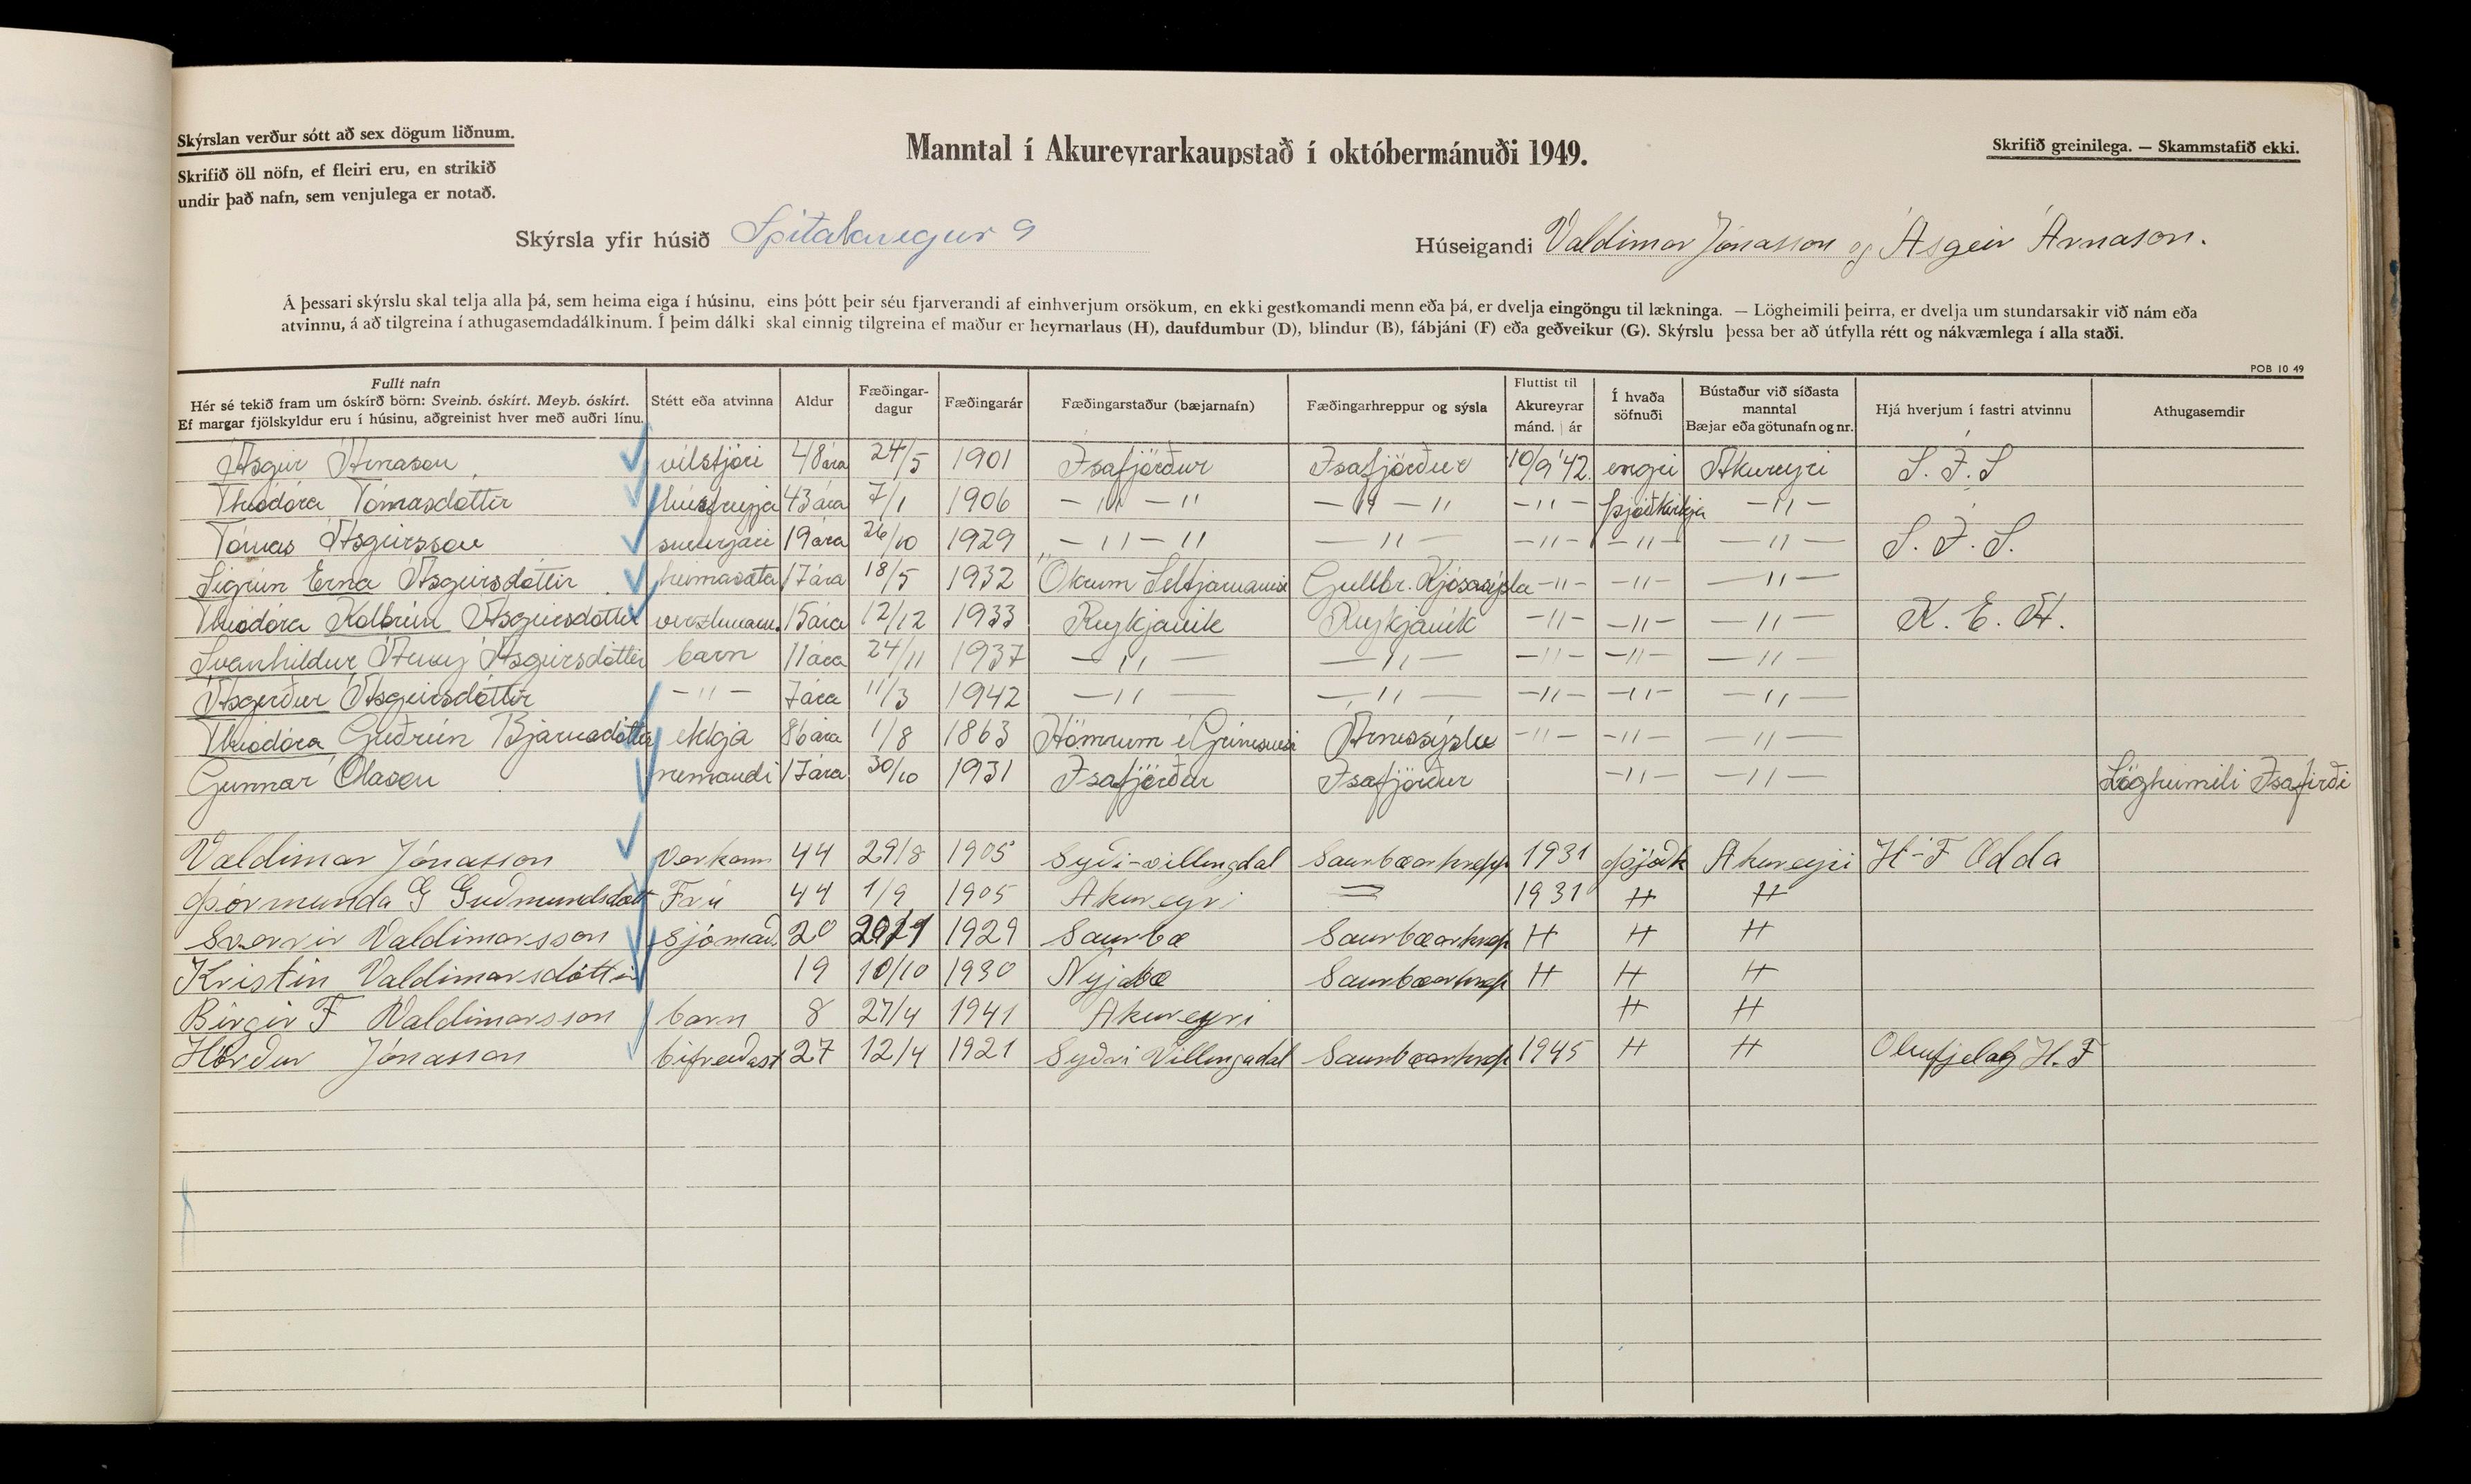 Skýrslan verður sótt að sex dögum liðnum.
Skrifið öll nöfn, ef fleiri eru, en strikið
undir það nafn, sem venjulega er notað.
Manntal í Akureyrarkaupstað í októbermánuði 1949.
Skrifið greinilega. — Skammstafið ekki.
Skýrsla yfir húsið Spítalavegur 9
Húseigandi Valdimar Jónasson og Ásgeir Árnason.
Á þessari skýrslu skal telja alla þá, sem heima eiga í húsinu, eins þótt þeir séu fjarverandi af einhverjum orsökum, en ekki gestkomandi menn eða þá, er dvelja eingöngu til lækninga. — Lögheimili þeirra, er dvelja um stundarsakir við nám eða
atvinnu, á að tilgreina í athugasemdadálkinum. Í þeim dálki skal einnig tilgreina ef maður er heyrnarlaus (H), daufdumbur (D), blindur (B), fábjáni (F) eða geðveikur (G). Skýrslu þessa ber að útfylla rétt og nákvæmlega í alla staði.
POB 10 49
Fullt nafn
Hér sé tekið fram um óskírð börn: Sveinb. óskírt. Meyb. óskírt.
Ef margar fjölskyldur eru í húsinu, aðgreinist hver með auðri línu.
Stétt eða atvinna
Aldur
Fæðingar-
dagur
Fæðingarár
Fæðingarstaður (bæjarnafn)
Fæðingarhreppur og sýsla
Fluttist til
Akureyrar
mánd. | ár
Í hvaða
söfnuði
Bústaður við síðasta
manntal
Bæjar eða götunafn og nr.
Hjá hverjum í fastri atvinnu
Athugasemdir
Ásgeir Árnason vélstjóri 48 ára 24/5 1901 Ísafjörður Ísafjörður 10/9 '42 engri Akureyri S. Í. S
Theódóra Tómasdóttir húsfreyja 43 ára 7/1 1906 — 11 — 11 — 11 — 11 — 11 — þjóðkirkja — 11 —
Tómas Ásgeirsson 19 ára 26/10 1929 — 11 — 11 — 11 — — 11 — — 11 — — 11 — S. Í. S.
Sigrún Erna Ásgeirsdóttir heimasæta 17 ára 18/5 1932 Ökrum Seltjarnarnesi Gullbr. Kjósarsýsla — 11 — — 11 — — 11 —
Theódóra Kolbrún Ásgeirsdóttir verzlunarm. 15 ára 12/12 1933 Reykjavík Reykjavík — 11 — — 11 — — 11 — K. E. A.
Svanhildur Ásgeirsdóttir barn 11 ára 24/11 1937 — 11 — — 11 — — 11 — — 11 — — 11 —
Ásgerður Ásgeirsdóttir — 11 — 7 ára 11/3 1942 — 11 — 11 — — 11 — — 11 — — 11 —
Theódóra Guðrún Bjarnadóttir ekkja 86 ára 1/8 1863 Hömrum í Grímsnesi Árnessýslu — 11 — — 11 — — 11 —
Gunnar Ólason nemandi 17 ára 30/10 1931 Ísafjörður Ísafjörður — 11 — — 11 — Lögheimili Ísafirði
Valdimar Jónasson Verkam 44 29/8 1905 Syðri-villingdal Saurbæarhrepp 1931 þjóðk Akureyri H-F Odda
Þórmunda G Guðmundsdótt Frú 44 1/9 1905 Akureyri = 1931 H H
Sverrir Valdimarsson Sjómað. 20 1929 Saurbæ Saurbæarhrep H H H
Kristín Valdimarsdóttir 19 10/10 1930 Nýjabæ Saurbæarhrep H H H
Birgir F Valdimarsson barn 8 27/4 1941 Akureyri H H
Hörður Jónasson bifreiðast 27 12/4 1921 Syðri Villingadal Saurbæarhrep 1945 H H Olíufjelag H.F